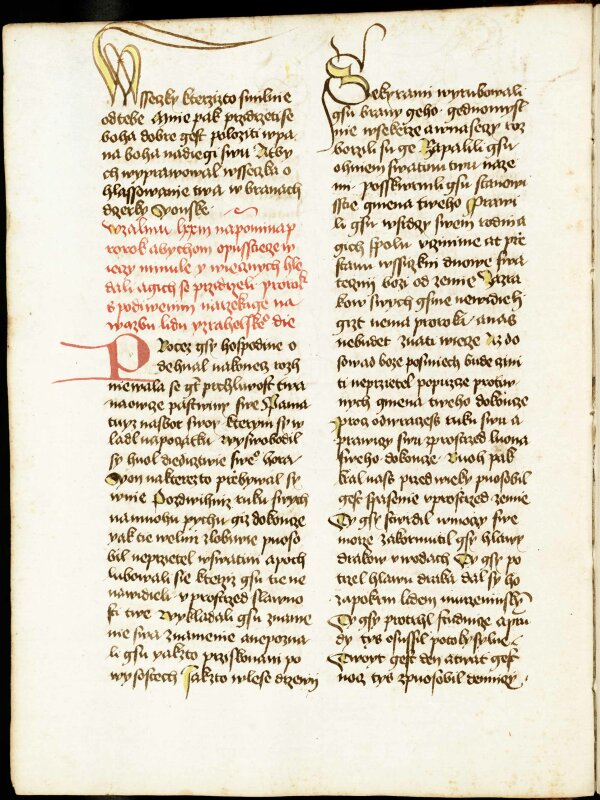 Wsseczky kterzizto smilnie
odtebe Mnie pak przidrzetise
boha dobre gest poloziti wpa
na boha nadiegi swu Aby
ch wyprawowal wssezka o
hlassowanie twa w branach
dzerky Syonske
Wzalmu lxxiii napomina p
rorok abychom opusstiece w
ieczy minule y wiecznych hle
dali a gich se przidrzeli protok
s podiwenim narzekage na
warbu lidu yzrahelske° die
Procez gsy hospodine o
dehnal nakonecz rozh
niewala se gt prchliwost twa
naowcze pastwiny swe Pama
tuyz nasbor swoy kterym sy w
ladl napoczatku Wyswobodil
sy huol diediczstwie swe° hora
Syon nakterezto przebywal sy
wnie Pozdwihniz ruku swych
namnohu pychu giz dokonze
yak tie welmi zlobiwie puoso
bil neprzietel wswatini a poch
lubowali sie kterzy gsu tie ne
nawidieli v prostrzed slawno
sti twe Wykladali gsu zname
nie swa znamenie a nepozna
li gsu yakzto prziskonani po
wysostech Jakzto wlese drzewi
Sekyrami wyrubowali
gsu brany geho gednomysl
nie wsekerze a wnasecy roz
borzili su ge Zapalili gsu
ohniem swatini twu naze
mi posskwrnili gsu stanowi
sstie gmena tweho Prawi
li gsu wsrdczy swem rodina
gich spolu vczinme at prze
stanu wssiczkni dnowe swa
teczni bozi od zemie Zazra
kow swych gsme newidieli
gizt nenie proroka a nas
nebudet znati wiecze Az do
sowad boze posmiech bude czini
ti neprzietel popuzie protiw
nych gmena tweho dokonze
Procz odwraczess ruku swu a
prawiczy swu zprostrzed luona
sweho dokonze Buoh pak
kral nass przed wieky puosobil
gest spasenie vprostrzed zemie
Ty gsy stwrdil wmoczy swe
morze zakormutil gsy hlawy
drakow vwodach Ty gsy po
trzel hlawu draka dal sy ho
zapokrm lidem murzeninsky
Ty gsy protrhl studnicze a pru
dy tys osussil potoky sylne
Twoyt gest den a twat gest
nocz tys zpuosobil denniczy